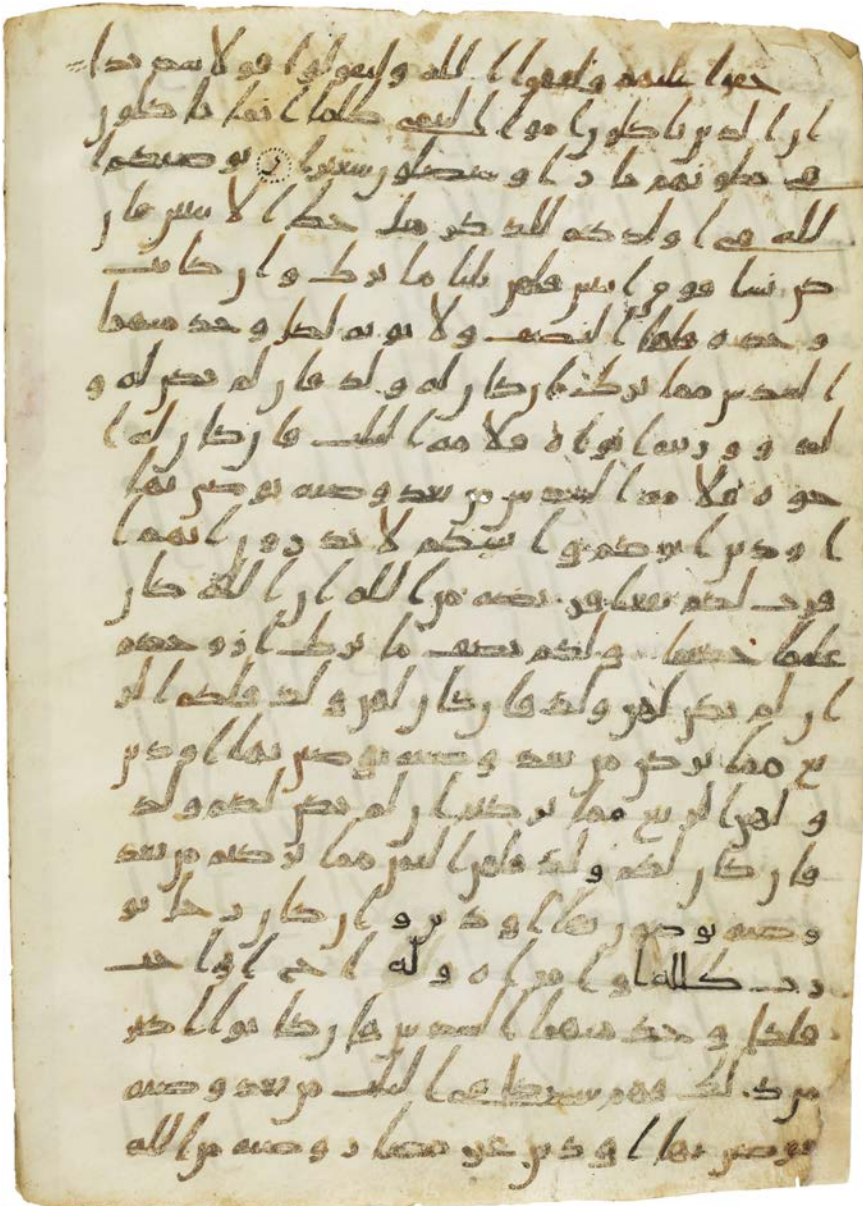 خفوا عليهم فليتقوا الله وليقولوا قولا سديدا
ان الذين ياكلون امول اليتمى ظلما انما ياكلون
في بطونهم نارا وسيصلون سعيرا يوصيكم ا
لله في اولدكم للذكر مثل حظ الانثيين فان
كن نسا فوق اثنتين فلهن ثلثا ما ترك وان كانت
وحدة فلها النصف ولابويه لكل وحد منهما
السدس مما ترك ان كان له ولد فان لم يكن له و
لد وورثه ابواه فلامه الثلث فان كان له ا
خوة فلامه السدس من بعد وصية يوصي بها
او دين اباوكم وابناوكم لا تدرون ايهم ا
قرب لكم نفعا فريضة من الله ان الله كان
عليما حكيما ولكم نصف ما ترك ازوجكم
ان لم يكن لهن ولد فان كان لهن ولد فلكم الر
بع مما تركن من بعد وصية يوصين بها او دين
ولهن الربع مما تركتم ان لم يكن لكم ولد
فان كان لكم ولد فلهن الثمن مما تركتم من بعد
وصية توصون بها او دين وان كان رجل يو
رث كللة او امراة وله اخ او اخت
فلكل وحد منهما السدس فان كانوا اكثر
من ذلك فهم شركا في الثلث من بعد وصية
يوصى بها او دين غير مضار وصية من الله